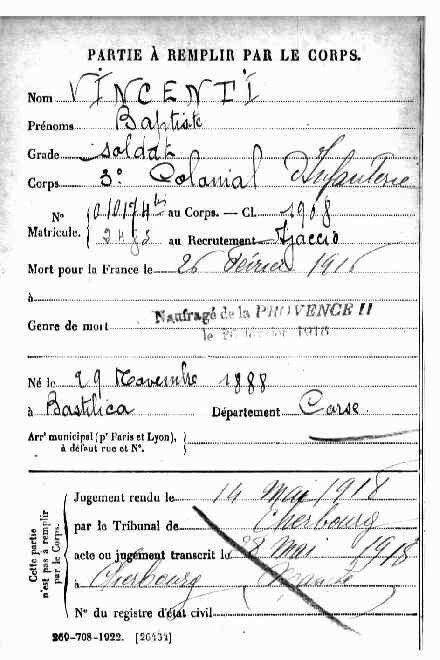 PARTIE À REMPLIR PAR LE CORPS.
Nom VINCENTI
Prénoms Baptiste
Grade soldat
Corps 3e Colonial Infanterie
N° Matricule. 010174 bis au Corps. — Cl. 1908
2483 au Recrutement Ajaccio
Mort pour la France le 26 Février 1916
à
Genre de mort Naufragé de la PROVENCE II
le février 1916
Né le 29 Novembre 1888
à Bastilica Département Corse
Arrt municipal (pr Paris et Lyon),
à défaut rue et N°.
Cette partie
n'est pas à remplir
par le Corps.
Jugement rendu le 14 Mai 1918
par le Tribunal de Cherbourg
acte ou jugement transcrit le 28 Mai 1918
à Cherbourg (Manche)
N° du registre d'état civil
260-708-1922. [26434]